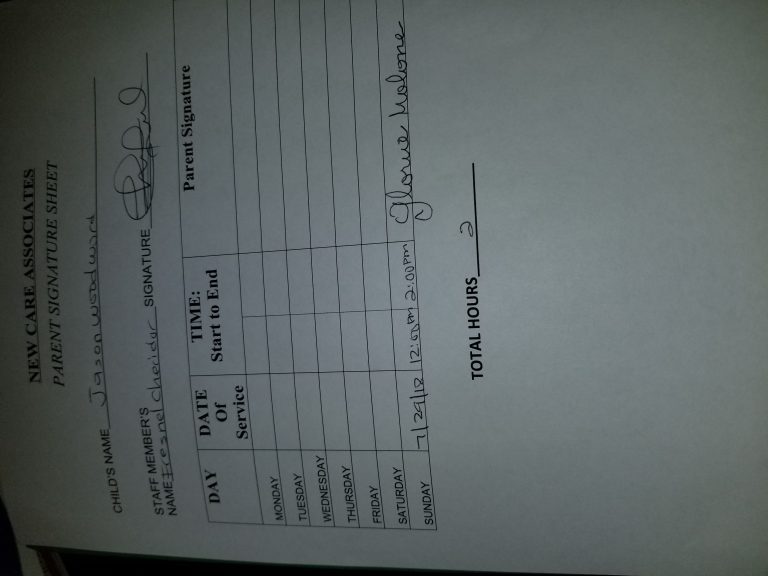 NEW CARE ASSOCIATES
PARENT SIGNATURE SHEET
CHILD'S NAME Jason Woodward
STAFF MEMBER'S
NAME Fresnel cheridor SIGNATURE
DAY DATE Of Service TIME: Start to End Parent Signature
MONDAY
TUESDAY
WEDNESDAY
THURSDAY
FRIDAY
SATURDAY
SUNDAY 7/29/18 12:00pm 2:00pm Glorive Malone
TOTAL HOURS 2